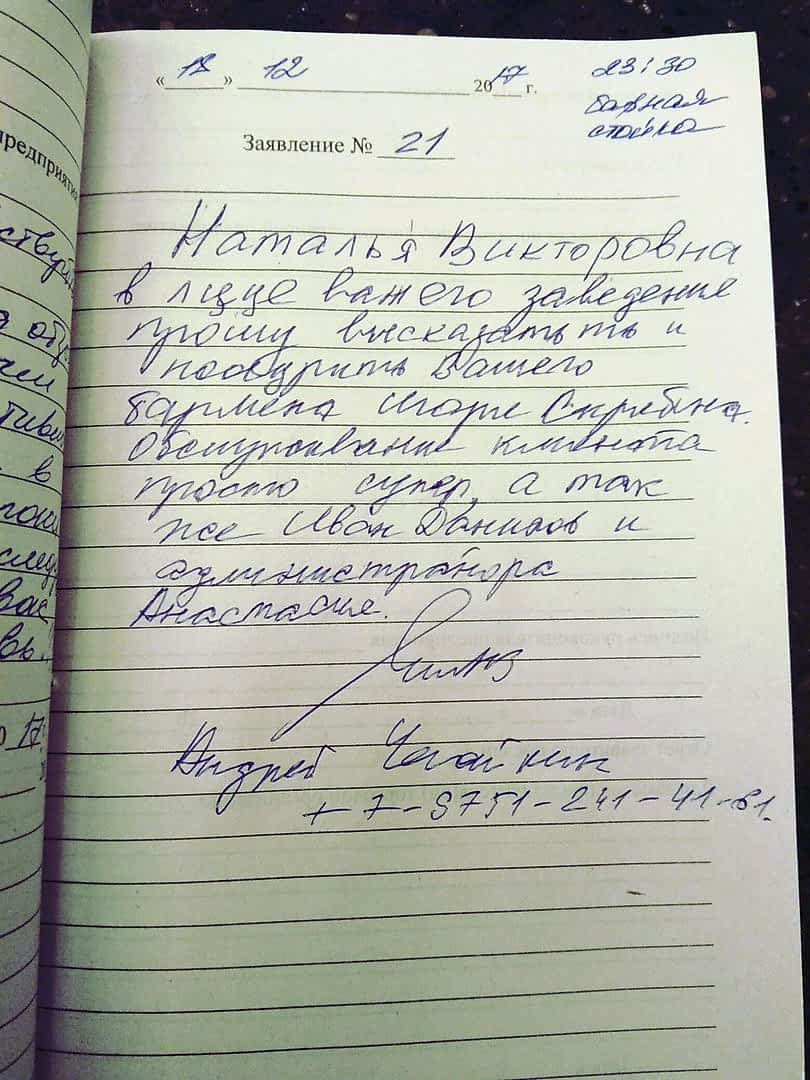 « 18 » 12 2017 г. 23:30
барная
стойка
Заявление № 21
Наталья Викторовна
в лице вашего заведения
прошу высказать ть и
поощрить Вашего
бармена Игоря
Обслуживание клиента
просто супер, а так
же Иван Данилов и
администратора
Анастасия.
Андрей
+7-9751-241-41-61.
предприятия
ству
в
вас
17